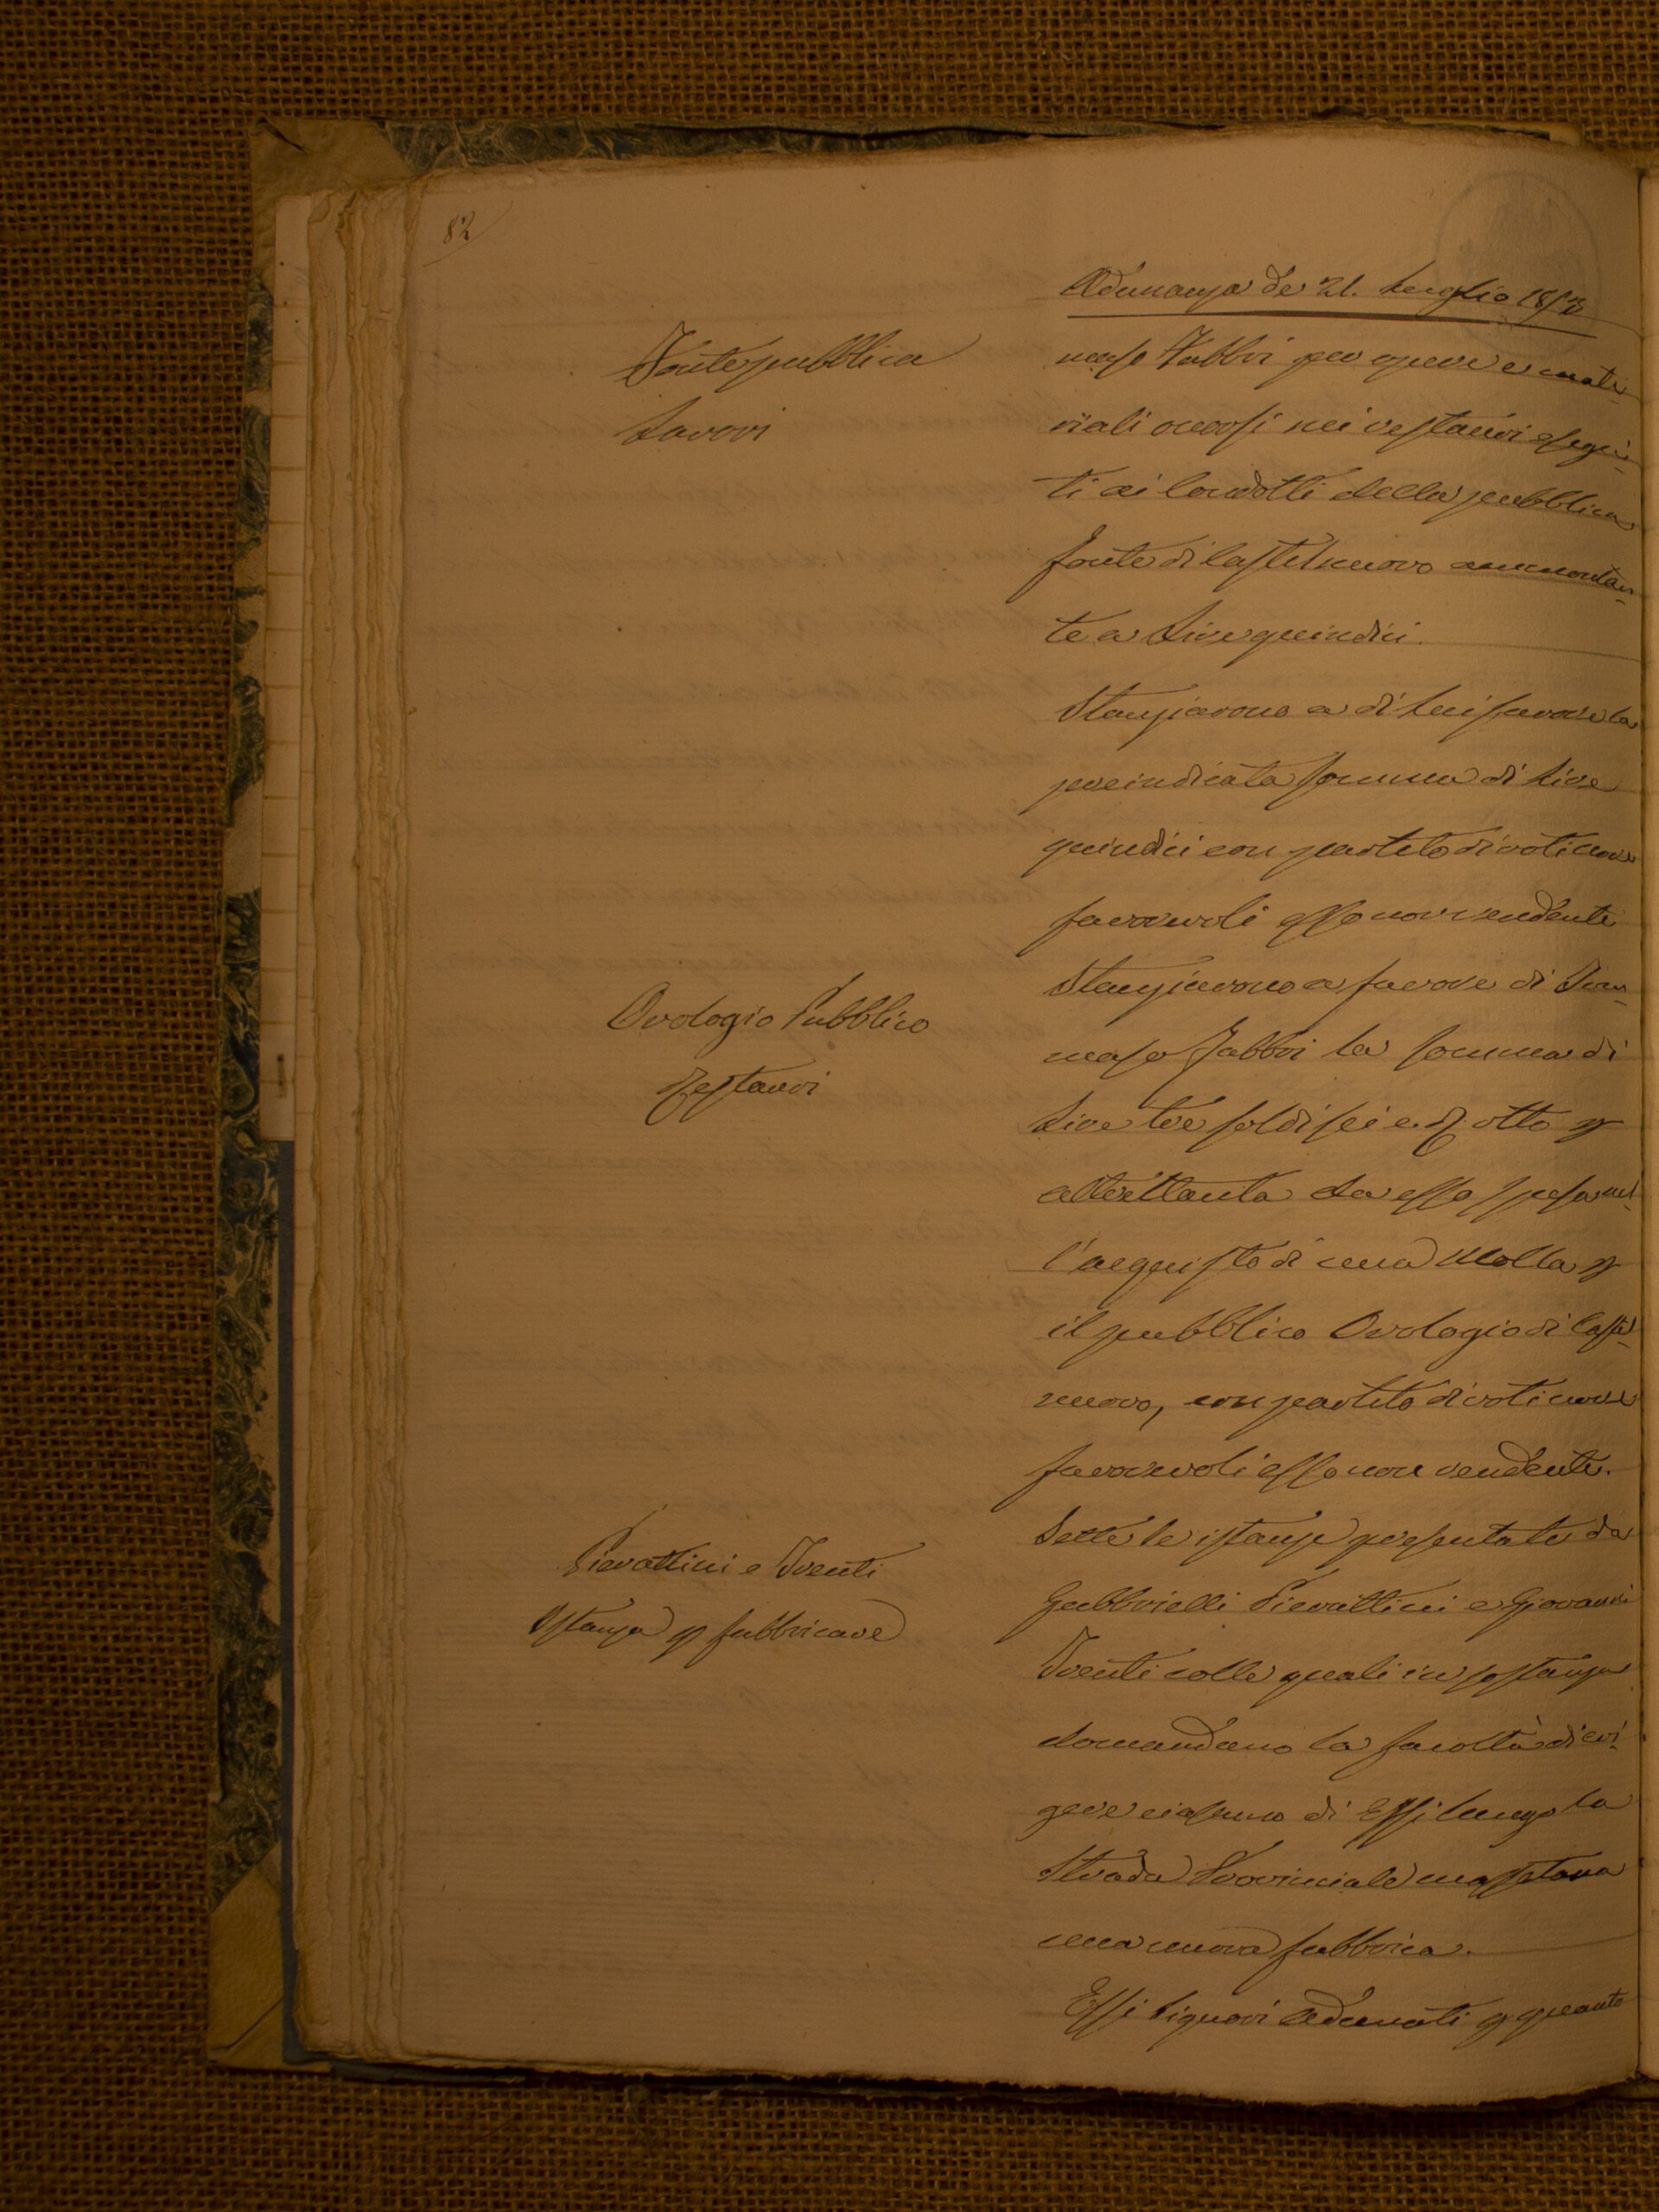 82
Adunanza de 21. Luglio 1853
Fonte pubblica
Lavori
maso Fabbri per opere e mate-
riali occorsi nei restauri esegui-
ti ai Condotti della pubblica
fonte di Castelnuovo ammontan-
te a Lire quindici.
Stanziarono a di Lui favore la
preindicata somma di Lire
quindici con partito di voti nove
favorevoli esso non rendente
Orologio Pubblico
Restauri
Stanziarono a favore di Tom-
maso Fabbri la somma di
Lire tre soldi sei e d. otto p
altrettanta da esso spesa nel-
l'acquisto di una Molla p
il pubblico Orologio di Castel-
nuovo, con partito di voti nove
favorevoli esso non rendente.
Pierattini e Trenti
Istanza p fabbricare
Lette le istanze presentate da
Gabbrielli Pierattini e Giovanni
Trenti colle quali in sostanza
domandano la facoltà di eri-
gere ciascuno di Essi lungo la
Strada Provinciale massetana
una nuova fabbrica.
Essi Signori Adunati p quanto